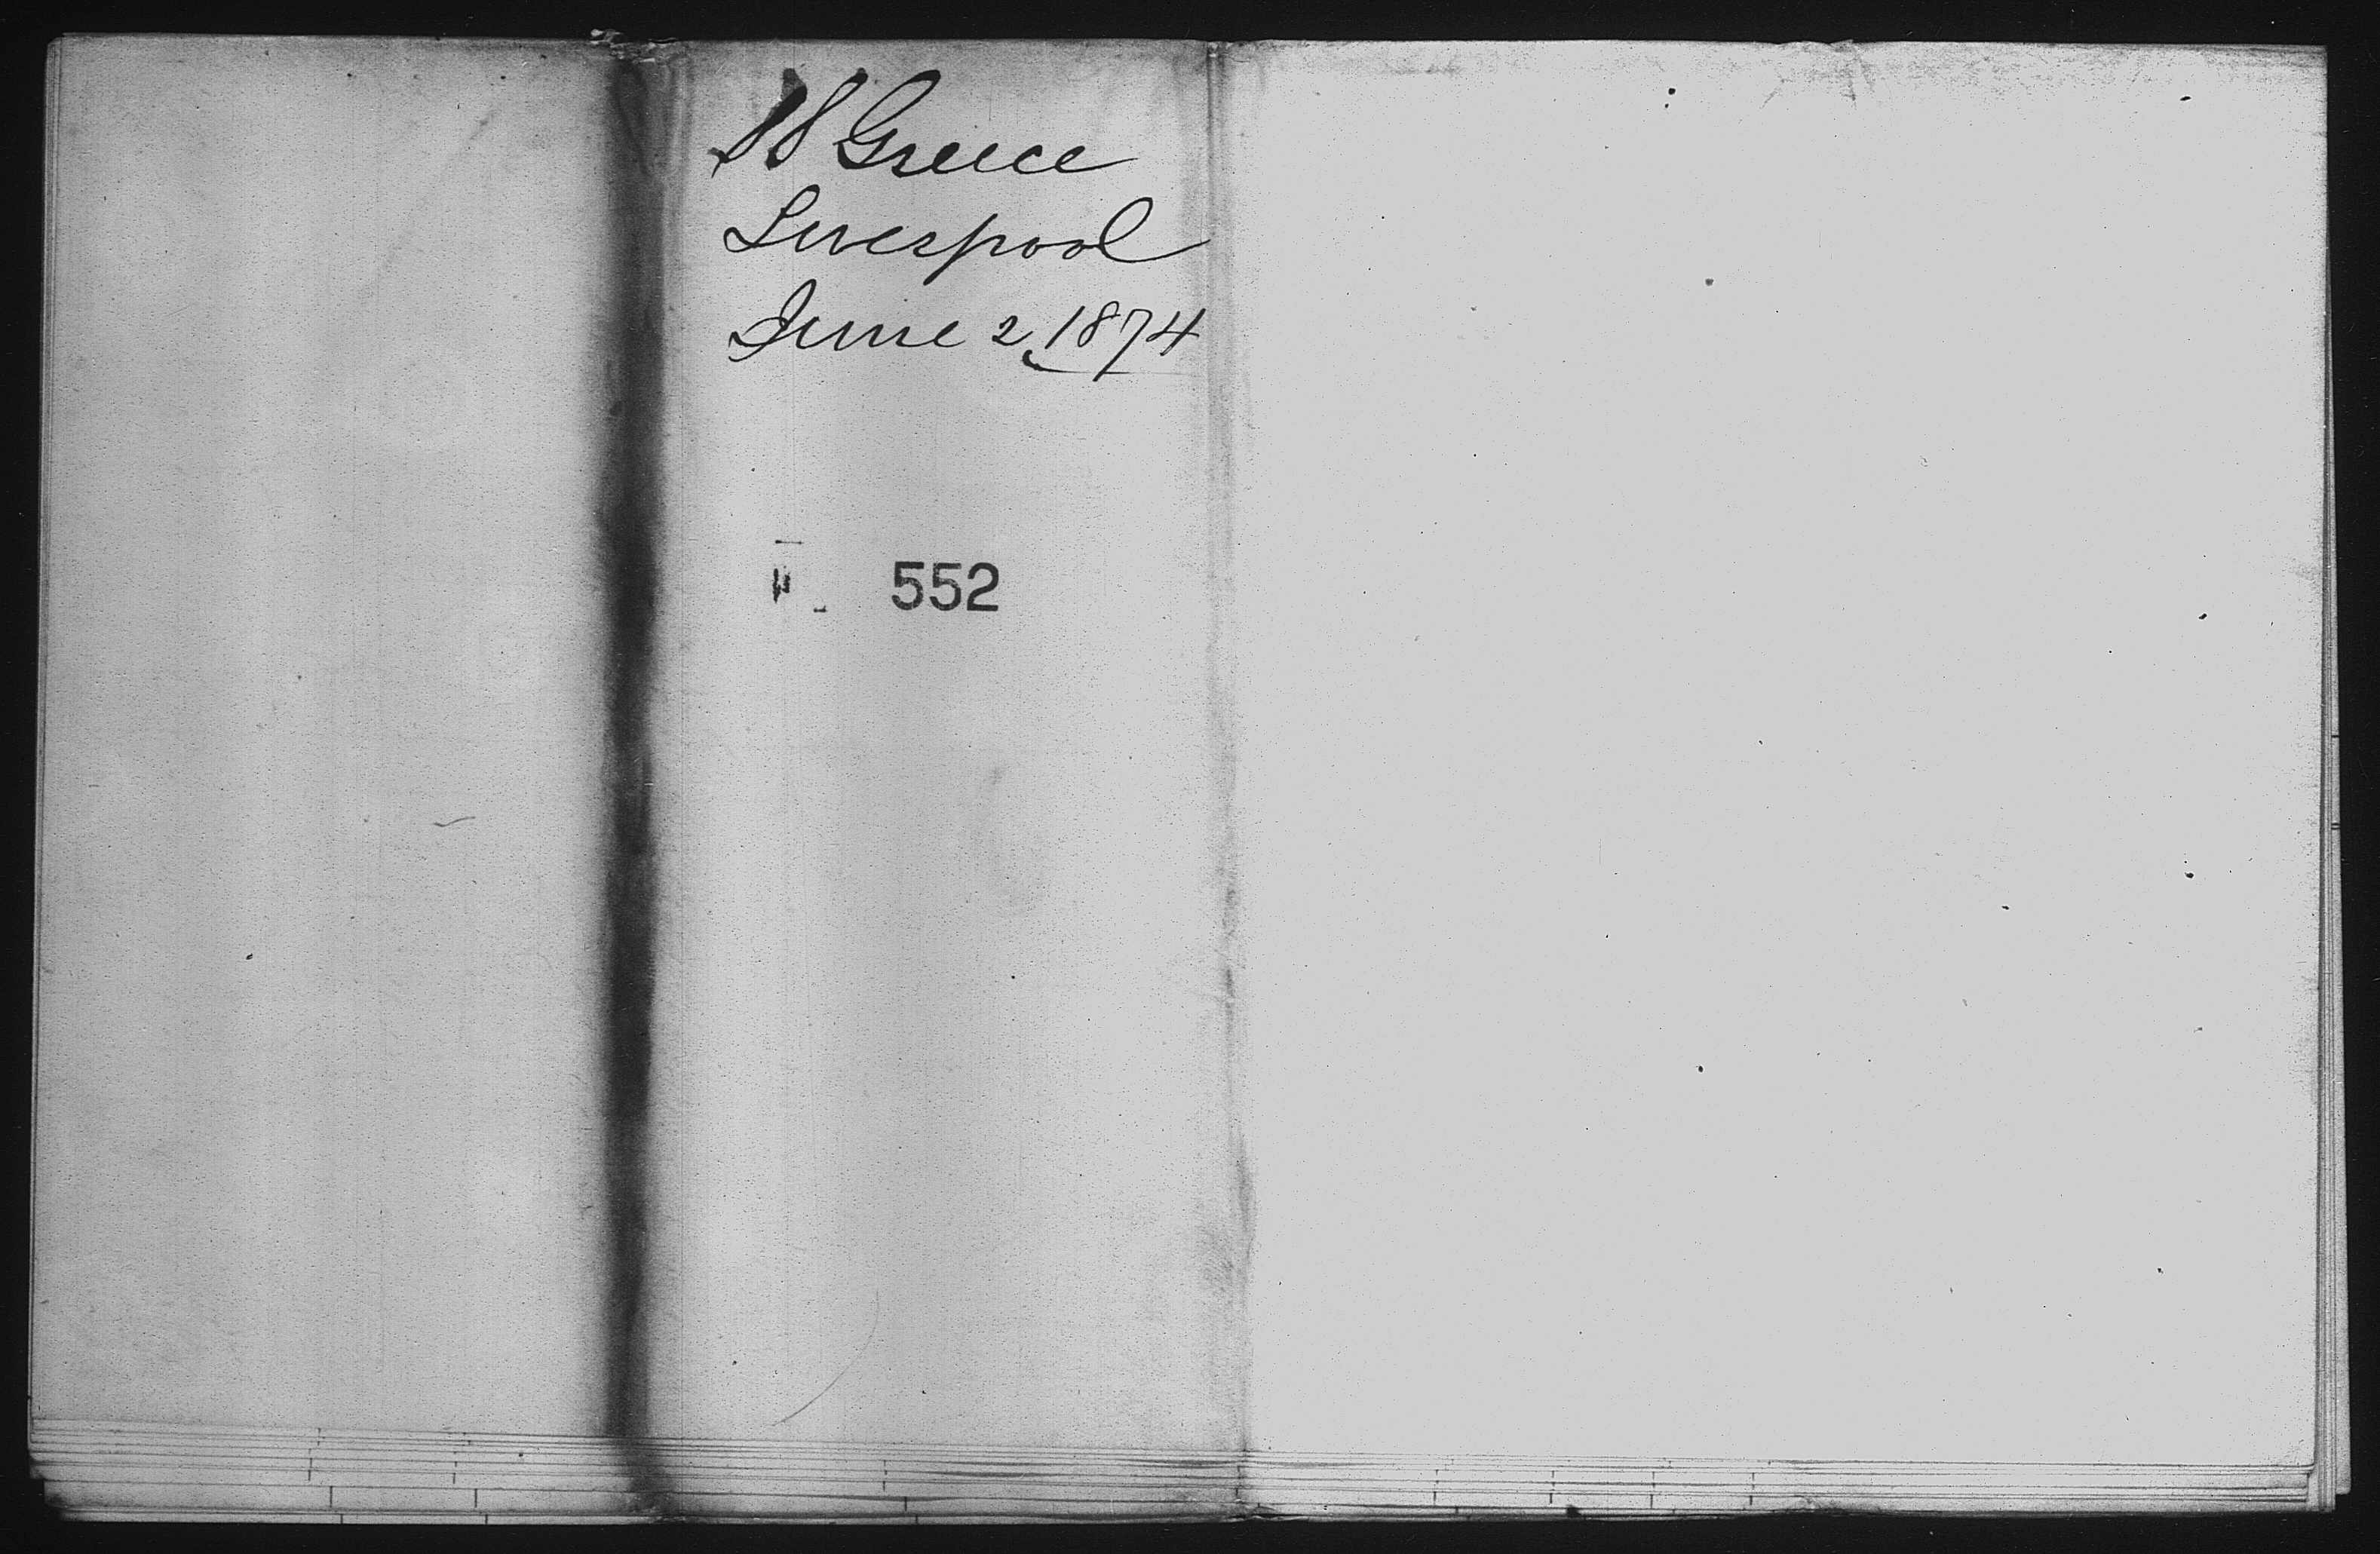 SS Greece
Liverpool
June 2, 1874
552